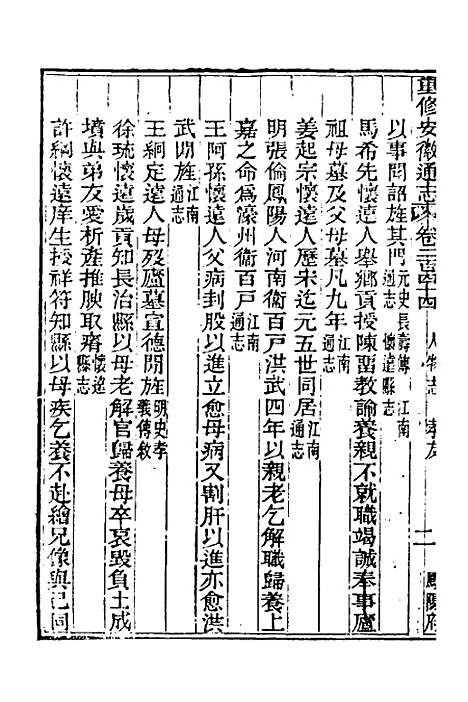 重修安徽通志 卷二百四十四 人物志 孝友 二 鳳陽府
以事聞詔旌其門元史長壽傳 江南通志 懷遠縣志
馬希先懷遠人舉鄉貢授陳畱教諭養親不就職竭誠奉事廬
祖母墓及父母墓凡九年江南通志
姜起宗懷遠人歷宋迄元五世同居江南通志
明張倫鳳陽人河南衞百戸洪武四年以親老乞解職歸養上
嘉之命爲濠州衞百戸江南通志
王阿孫懷遠人父病刲股以進立愈母病又割肝以進亦愈洪
武閒旌江南通志
王綱定遠人母歿廬墓宣德閒旌明史孝義傳敘
徐琉懷遠歲貢知長治縣以母老解官歸養母卒哀毀負土成
墳與弟友愛析產推腴取瘠懷遠縣志
許綱懷遠庠生授祥符知縣以母疾乞養不赴繪兄像與己同